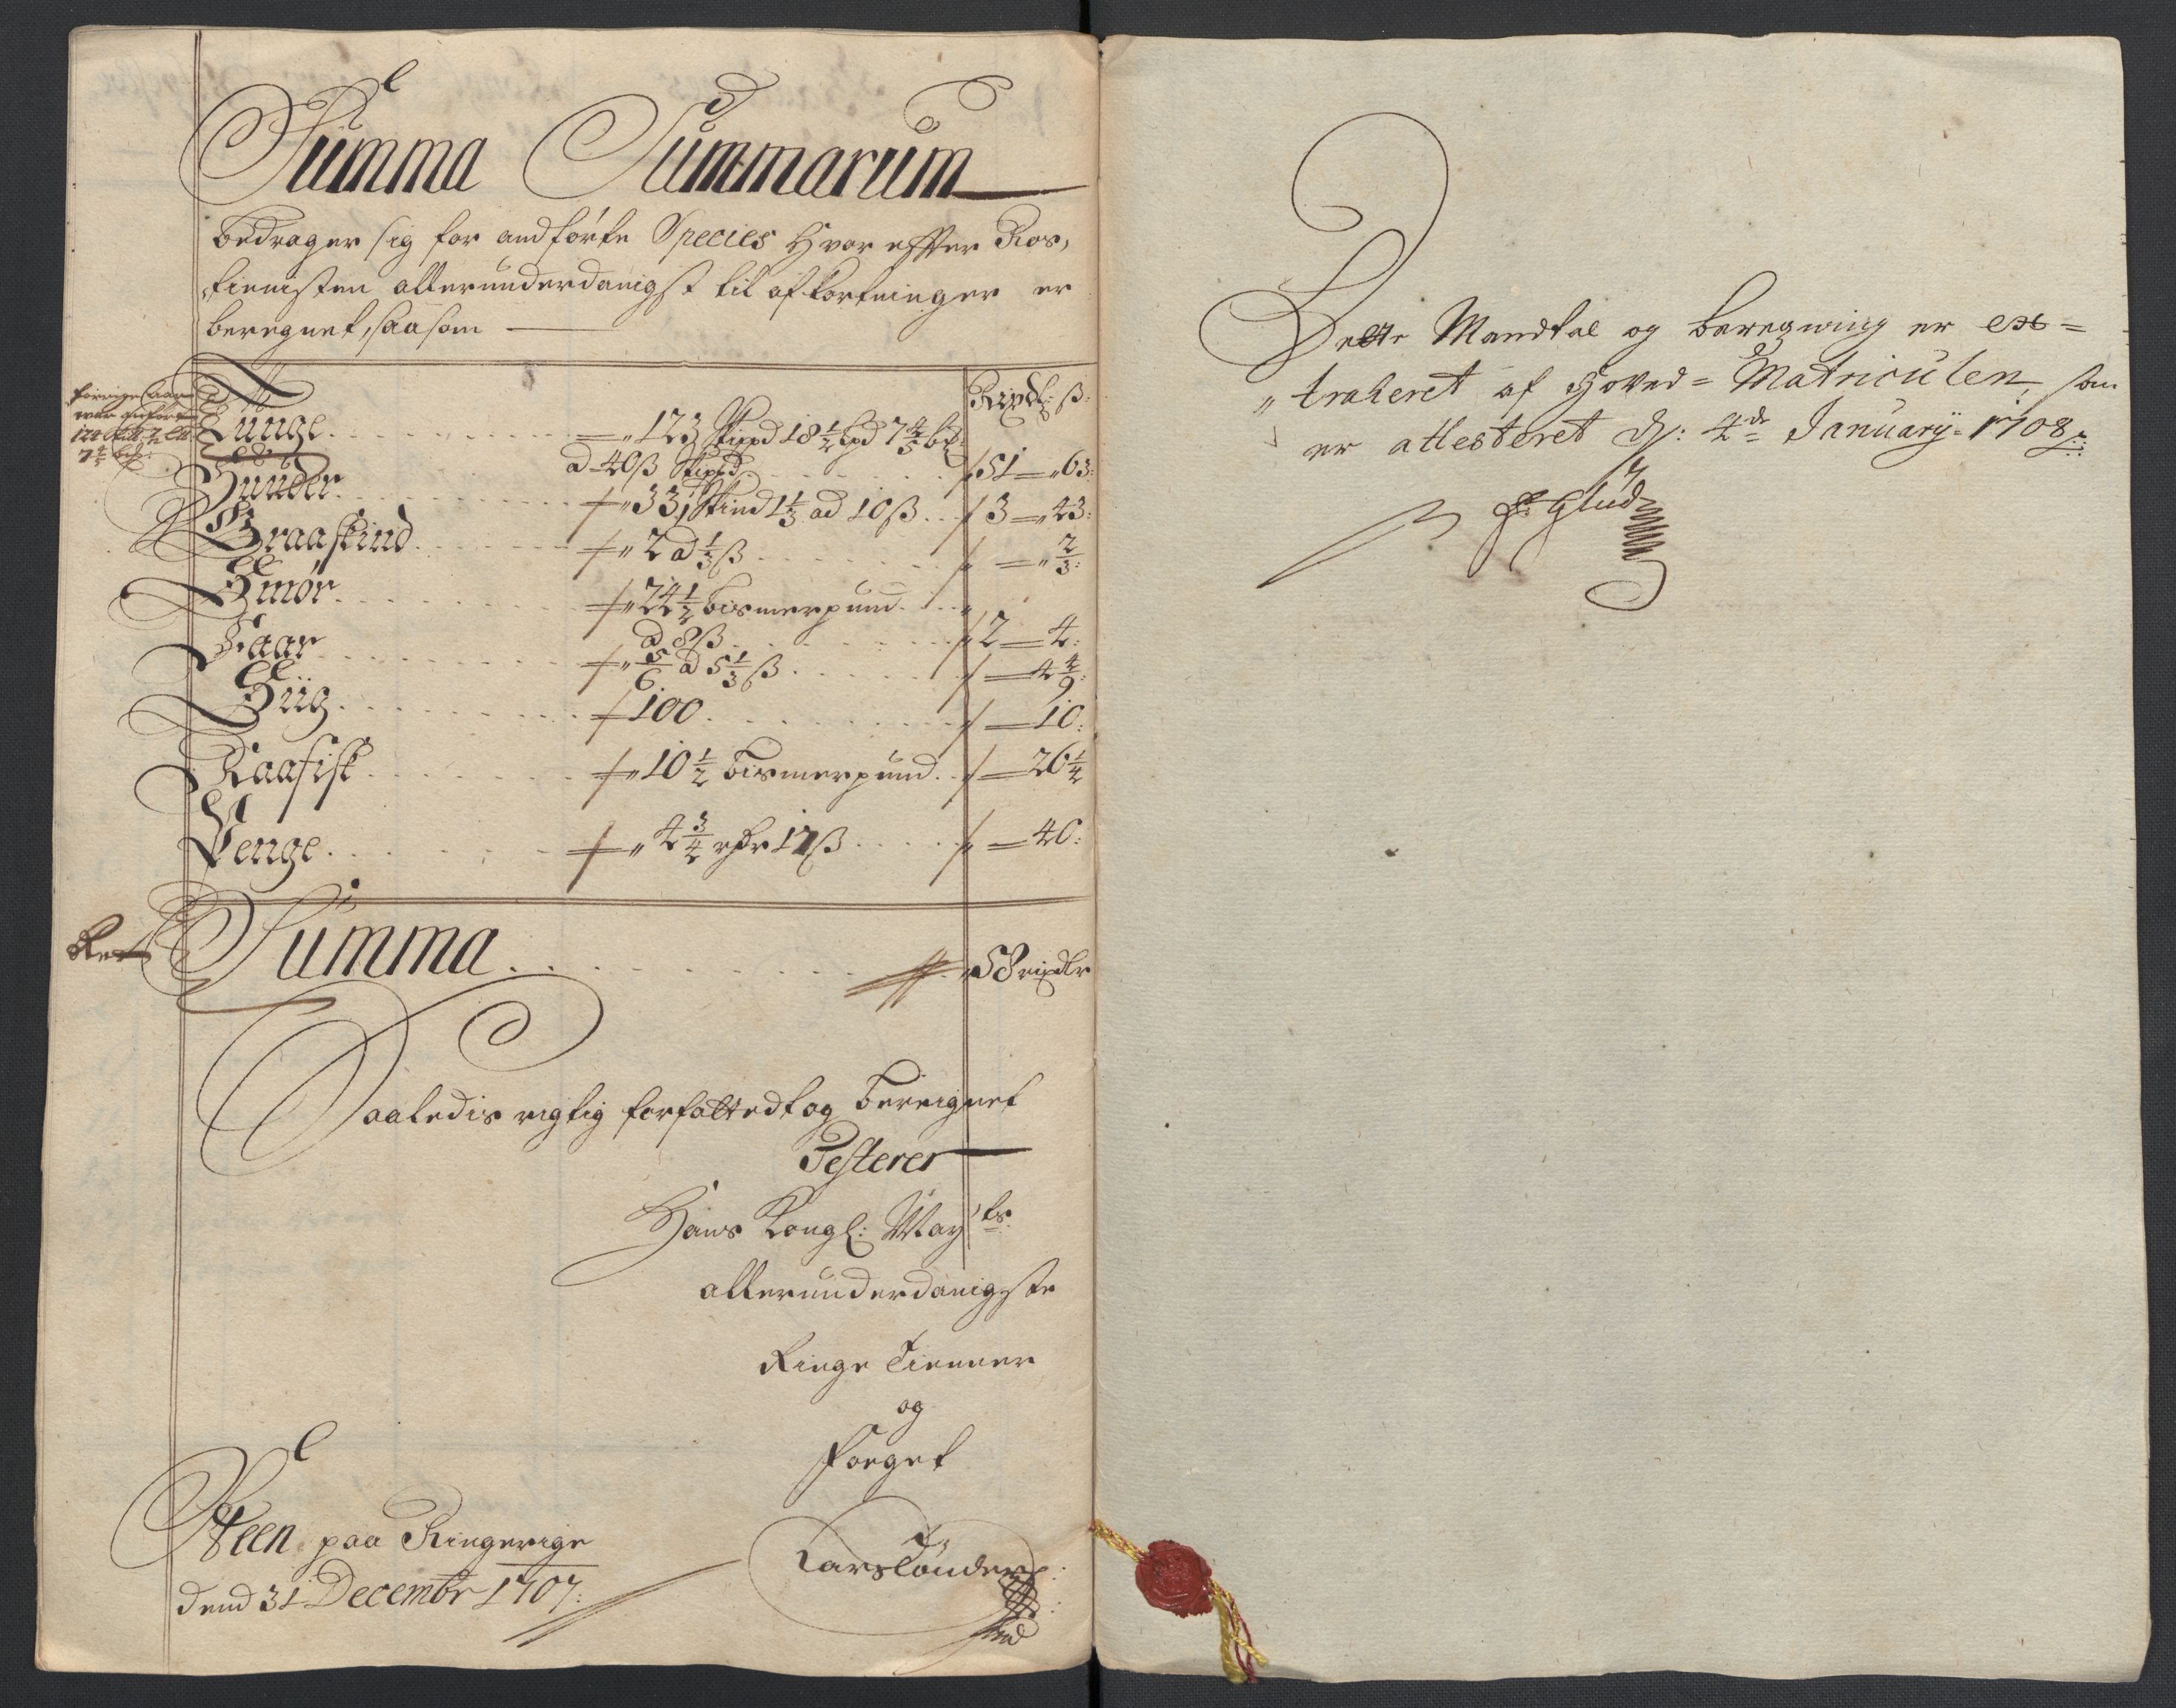 Summa Summarum
bedrager sig for andførte Species Hvor effter Ros,
tienisten allerunderdanigst til afkortninger er
beregnet, saasom
Rixdlr: ß:
forrige aar
Tunge . . . 123 Skippd 18 1/2 Lpd 7 4/5 bß
7 4/5
ad 40ß Skippd . . . 51 — 63:
Huuder . . . 33, Skind 1 1/3 ad 10ß . . 3 — 43:
Graaskind . . . 2 ad 1/3 ß . . . — 2/3:
Smør . . . 24 1/2 bismerpund . . .
ad 8ß . . . 2 — 4:
Faar . . . 5/6 ad 5 1/3 ß . . . — 4 4/9:
Hüg . . . 100 . . . — 10:
Raafisk . . . 10 1/2 bismerpund . . — 26 1/4
Penge . . . 4 3/4 rhr 17ß . . . — 40:
Ret
Summa . . . 58 rixdlr
Saaledis rigtig forfattedt og bereignet
Testerer
Hans Kongl: May ts
allerunderdanigste
Ringe Tienner
og
Foeget
Steen paa Ringerige
dend 31 Decembr 1707:
Lars Tønder
Dette Mandtal og beregning er ex=
traheret af Hoved=Matriculen som
er attesteret D: 4de January 1708
Glud